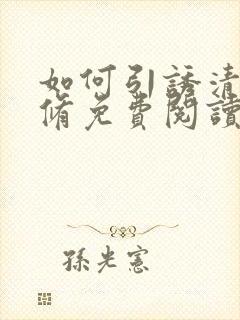 如何引誘清
脩免費閱讀
孫光憲